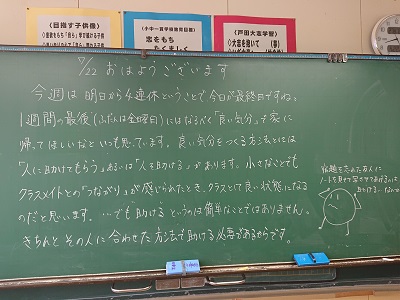 《目指す子供像》
《小中一貫学級教育目標》
志をもち
たくましく
《戸田大志学習》
7/22 おはようございます
今週は明日から4連休ということで、今日が最終日ですね。
1週間の最後(ふだんは金曜日)にはなるべく「良い気分」で家に
帰ってほしいなといつも思っています。良い気分をつくる方法としては
「人に助けてもらう」あるいは「人を助ける」があります。小さなことでも
クラスメイトとの「つながり」が感じられたとき、クラスとして良い状態になる
のだと思います。…でも助けるというのは簡単なことではありません。
きちんとその人に合わせた方法で助ける必要があるからです。
宿題を忘れた友人に
ノートを見せて写させてあげるのは